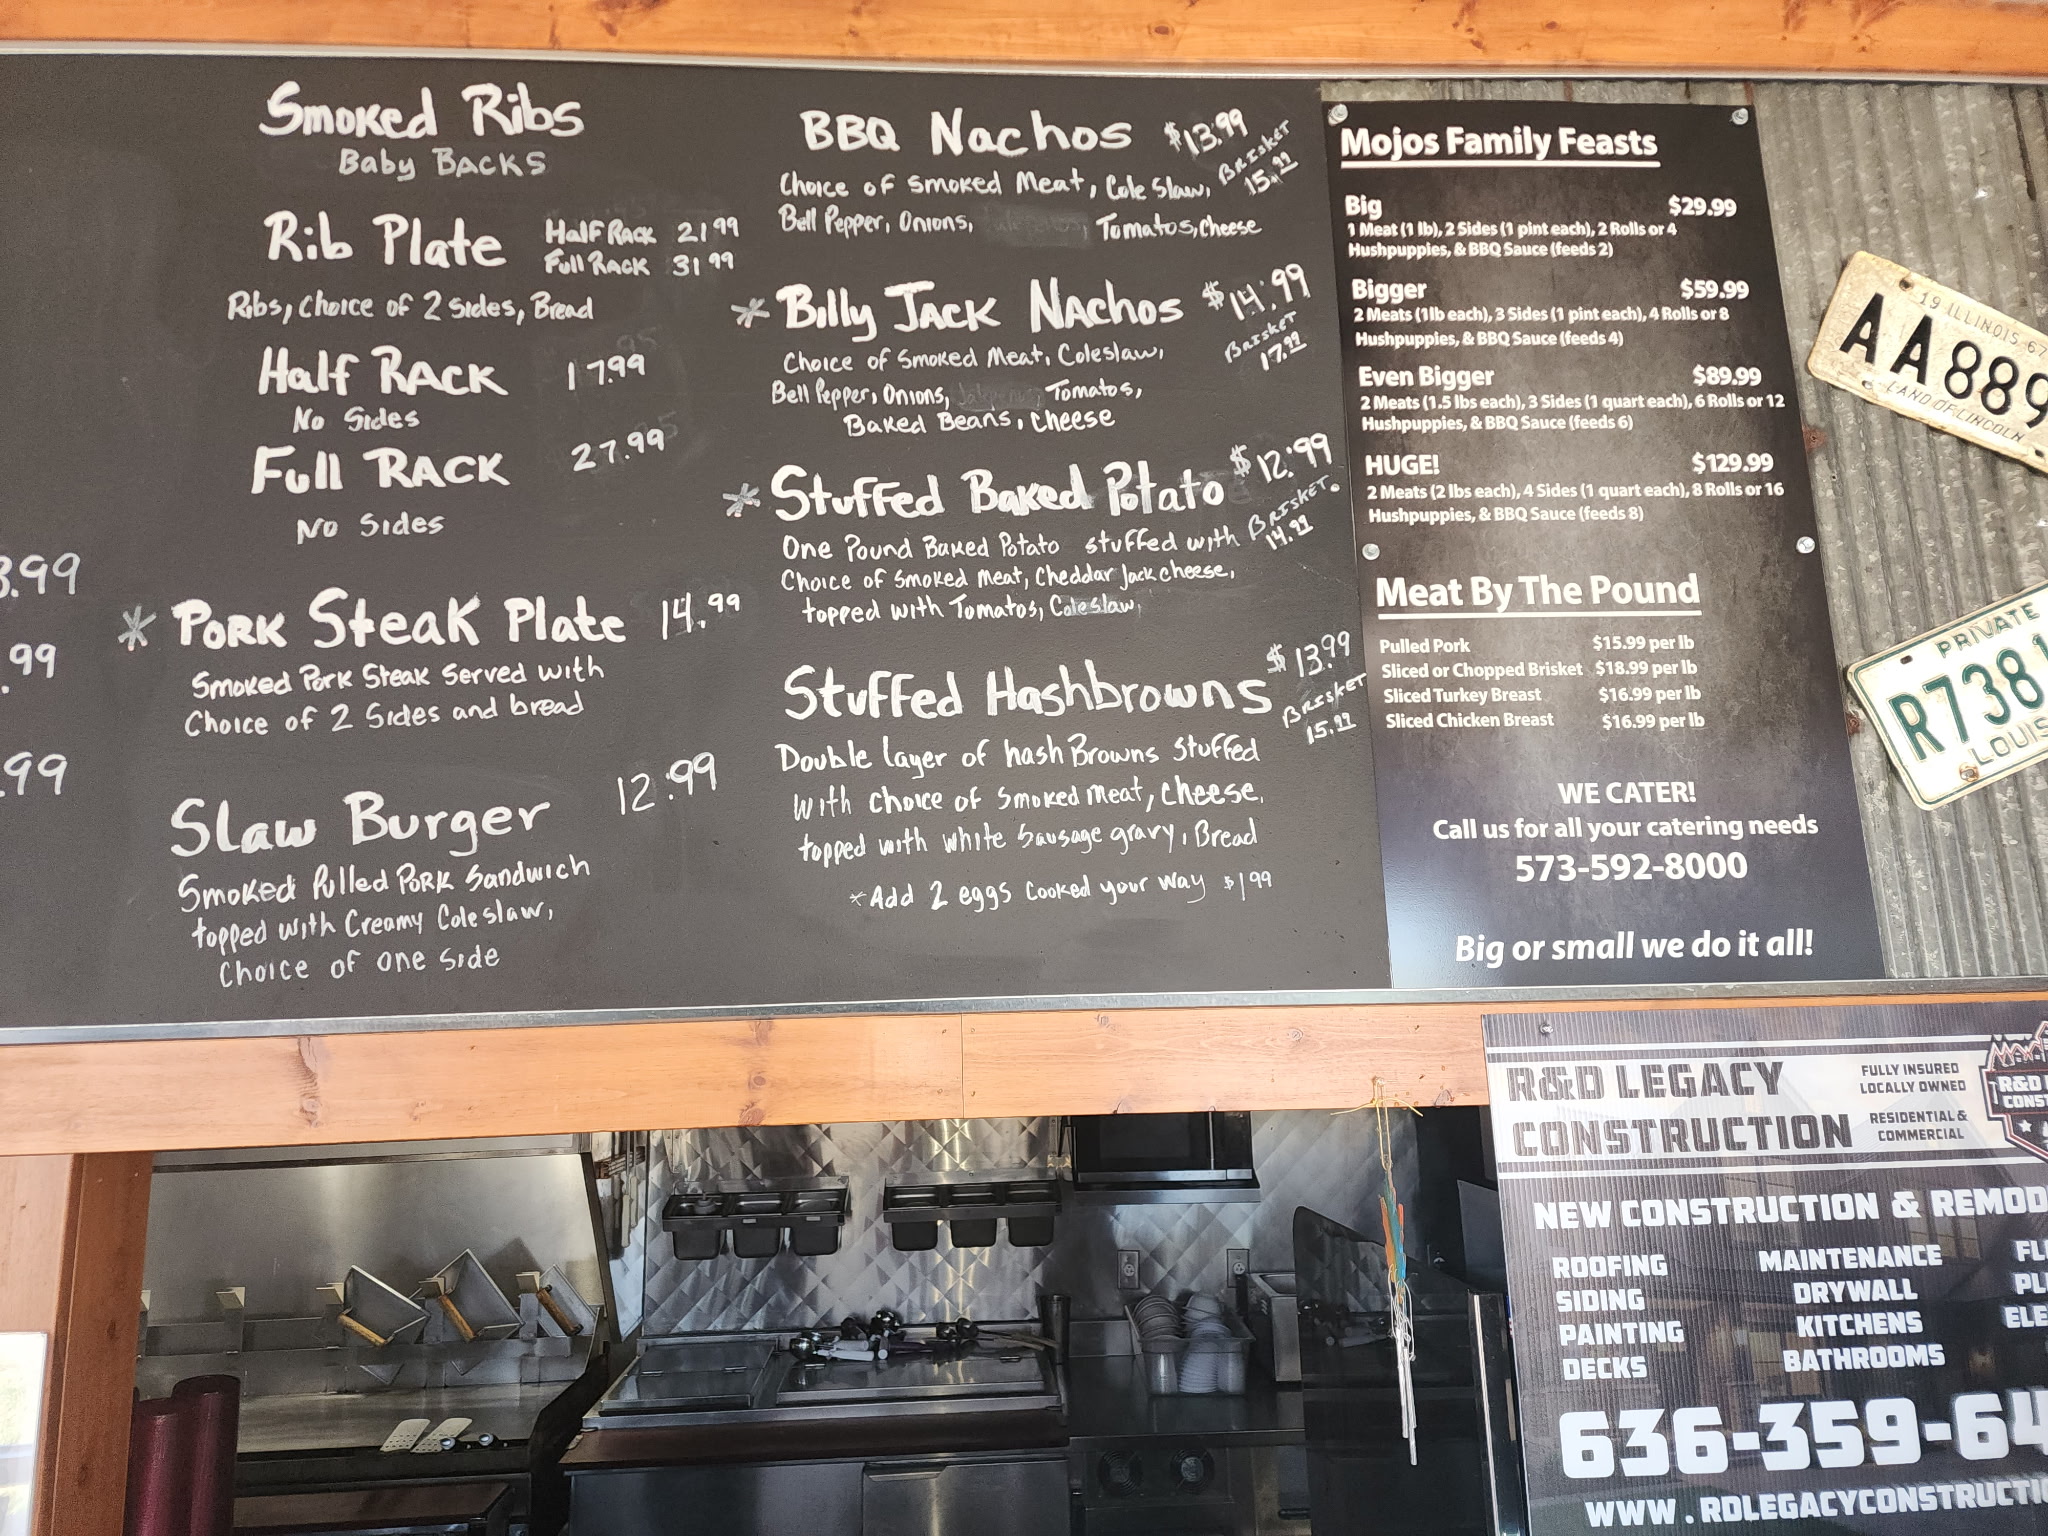 Smoked Ribs
Baby BACKS
Rib Plate
Half Rack 21 99
Full Rack 31 99
Ribs, Choice of 2 Sides, Bread
Half RACK 17.99
No Sides
Full RACK 27.99
No Sides
.99
.99
* PORK Steak Plate 14.99
Smoked Pork Steak Served with
Choice of 2 Sides and bread
.99
Slaw Burger 12.99
Smoked Pulled Pork Sandwich
topped with Creamy Coleslaw,
Choice of one side
BBQ Nachos $13.99
Brisket
15.99
Choice of Smoked Meat, Cole Slaw,
Bell Pepper, Onions, Tomatos, Cheese
* Billy JACK NAchos $14.99
Brisket
17.99
Choice of Smoked Meat, Coleslaw,
Bell Pepper, Onions, Tomatos,
Baked Beans, Cheese
* Stuffed Baked Potato $12.99
Brisket.
14.99
One Pound Baked Potato stuffed with
Choice of Smoked Meat, Cheddar Jack cheese,
topped with Tomatos, Coleslaw,
Stuffed Hashbrowns $13.99
Brisket
15.99
Double layer of hash Browns Stuffed
With choice of Smoked Meat, Cheese,
topped with white Sausage gravy, Bread
*Add 2 eggs cooked your way $1 99
Mojos Family Feasts
Big $29.99
1 Meat (1 lb), 2 Sides (1 pint each), 2 Rolls or 4
Hushpuppies, & BBQ Sauce (feeds 2)
Bigger $59.99
2 Meats (1lb each), 3 Sides (1 pint each), 4 Rolls or 8
Hushpuppies, & BBQ Sauce (feeds 4)
Even Bigger $89.99
2 Meats (1.5 lbs each), 3 Sides (1 quart each), 6 Rolls or 12
Hushpuppies, & BBQ Sauce (feeds 6)
HUGE! $129.99
2 Meats (2 lbs each), 4 Sides (1 quart each), 8 Rolls or 16
Hushpuppies, & BBQ Sauce (feeds 8)
Meat By The Pound
Pulled Pork $15.99 per lb
Sliced or Chopped Brisket $18.99 per lb
Sliced Turkey Breast $16.99 per lb
Sliced Chicken Breast $16.99 per lb
WE CATER!
Call us for all your catering needs
573-592-8000
Big or small we do it all!
19 ILLINOIS 67
AA889
LAND OF LINCOLN
PRIVATE
R738
LOUIS
R&D LEGACY
CONSTRUCTION
FULLY INSURED
LOCALLY OWNED
RESIDENTIAL &
COMMERCIAL
R&D
CONST
NEW CONSTRUCTION & REMOD
ROOFING MAINTENANCE FL
SIDING DRYWALL PL
PAINTING KITCHENS ELE
DECKS BATHROOMS
636-359-64
WWW.RDLEGACYCONSTRUCTI